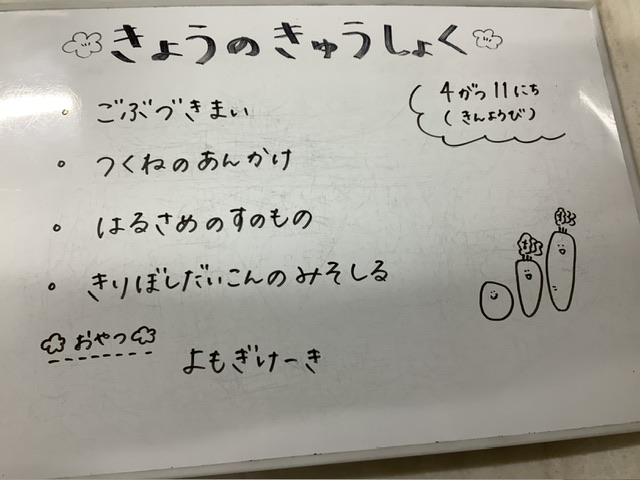 きょうのきゅうしょく
4がつ11にち
(きんようび)
。ごぶづきまい
。つくねのあんかけ
。はるさめのすのもの
。きりぼしだいこんのみそしる
おやつ
よもぎけーき